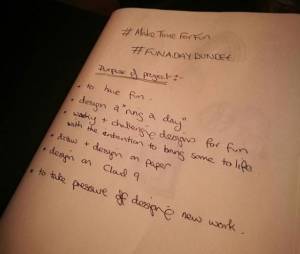 # Make Time For Fun
# FUNADAYDUNDEE
Purpose of project :-
• to have fun.
• design a "ring a day"
• wacky + challenging designs for fun
with the intention to bring some to life
• draw + design on paper
• design on Cloud 9
• to take pressure off designing new work.